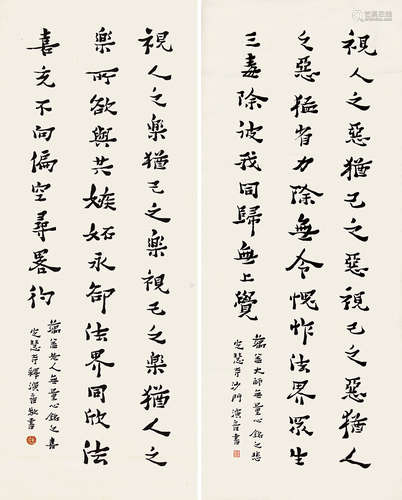 視人之惡猶己之惡視己之惡猶人
之惡猛省力除無令愧怍法界眾生
三毒除彼我同歸無上覺
蕅益大師無量心銘之悲
定慧寺沙門演音書
視人之樂猶己之樂視己之樂猶人之
樂所欲與共嫉妬永卻法界同欣法
喜充不向偏空尋畧彴
蕅益老人無量心銘之喜
定慧寺釋演音敬書